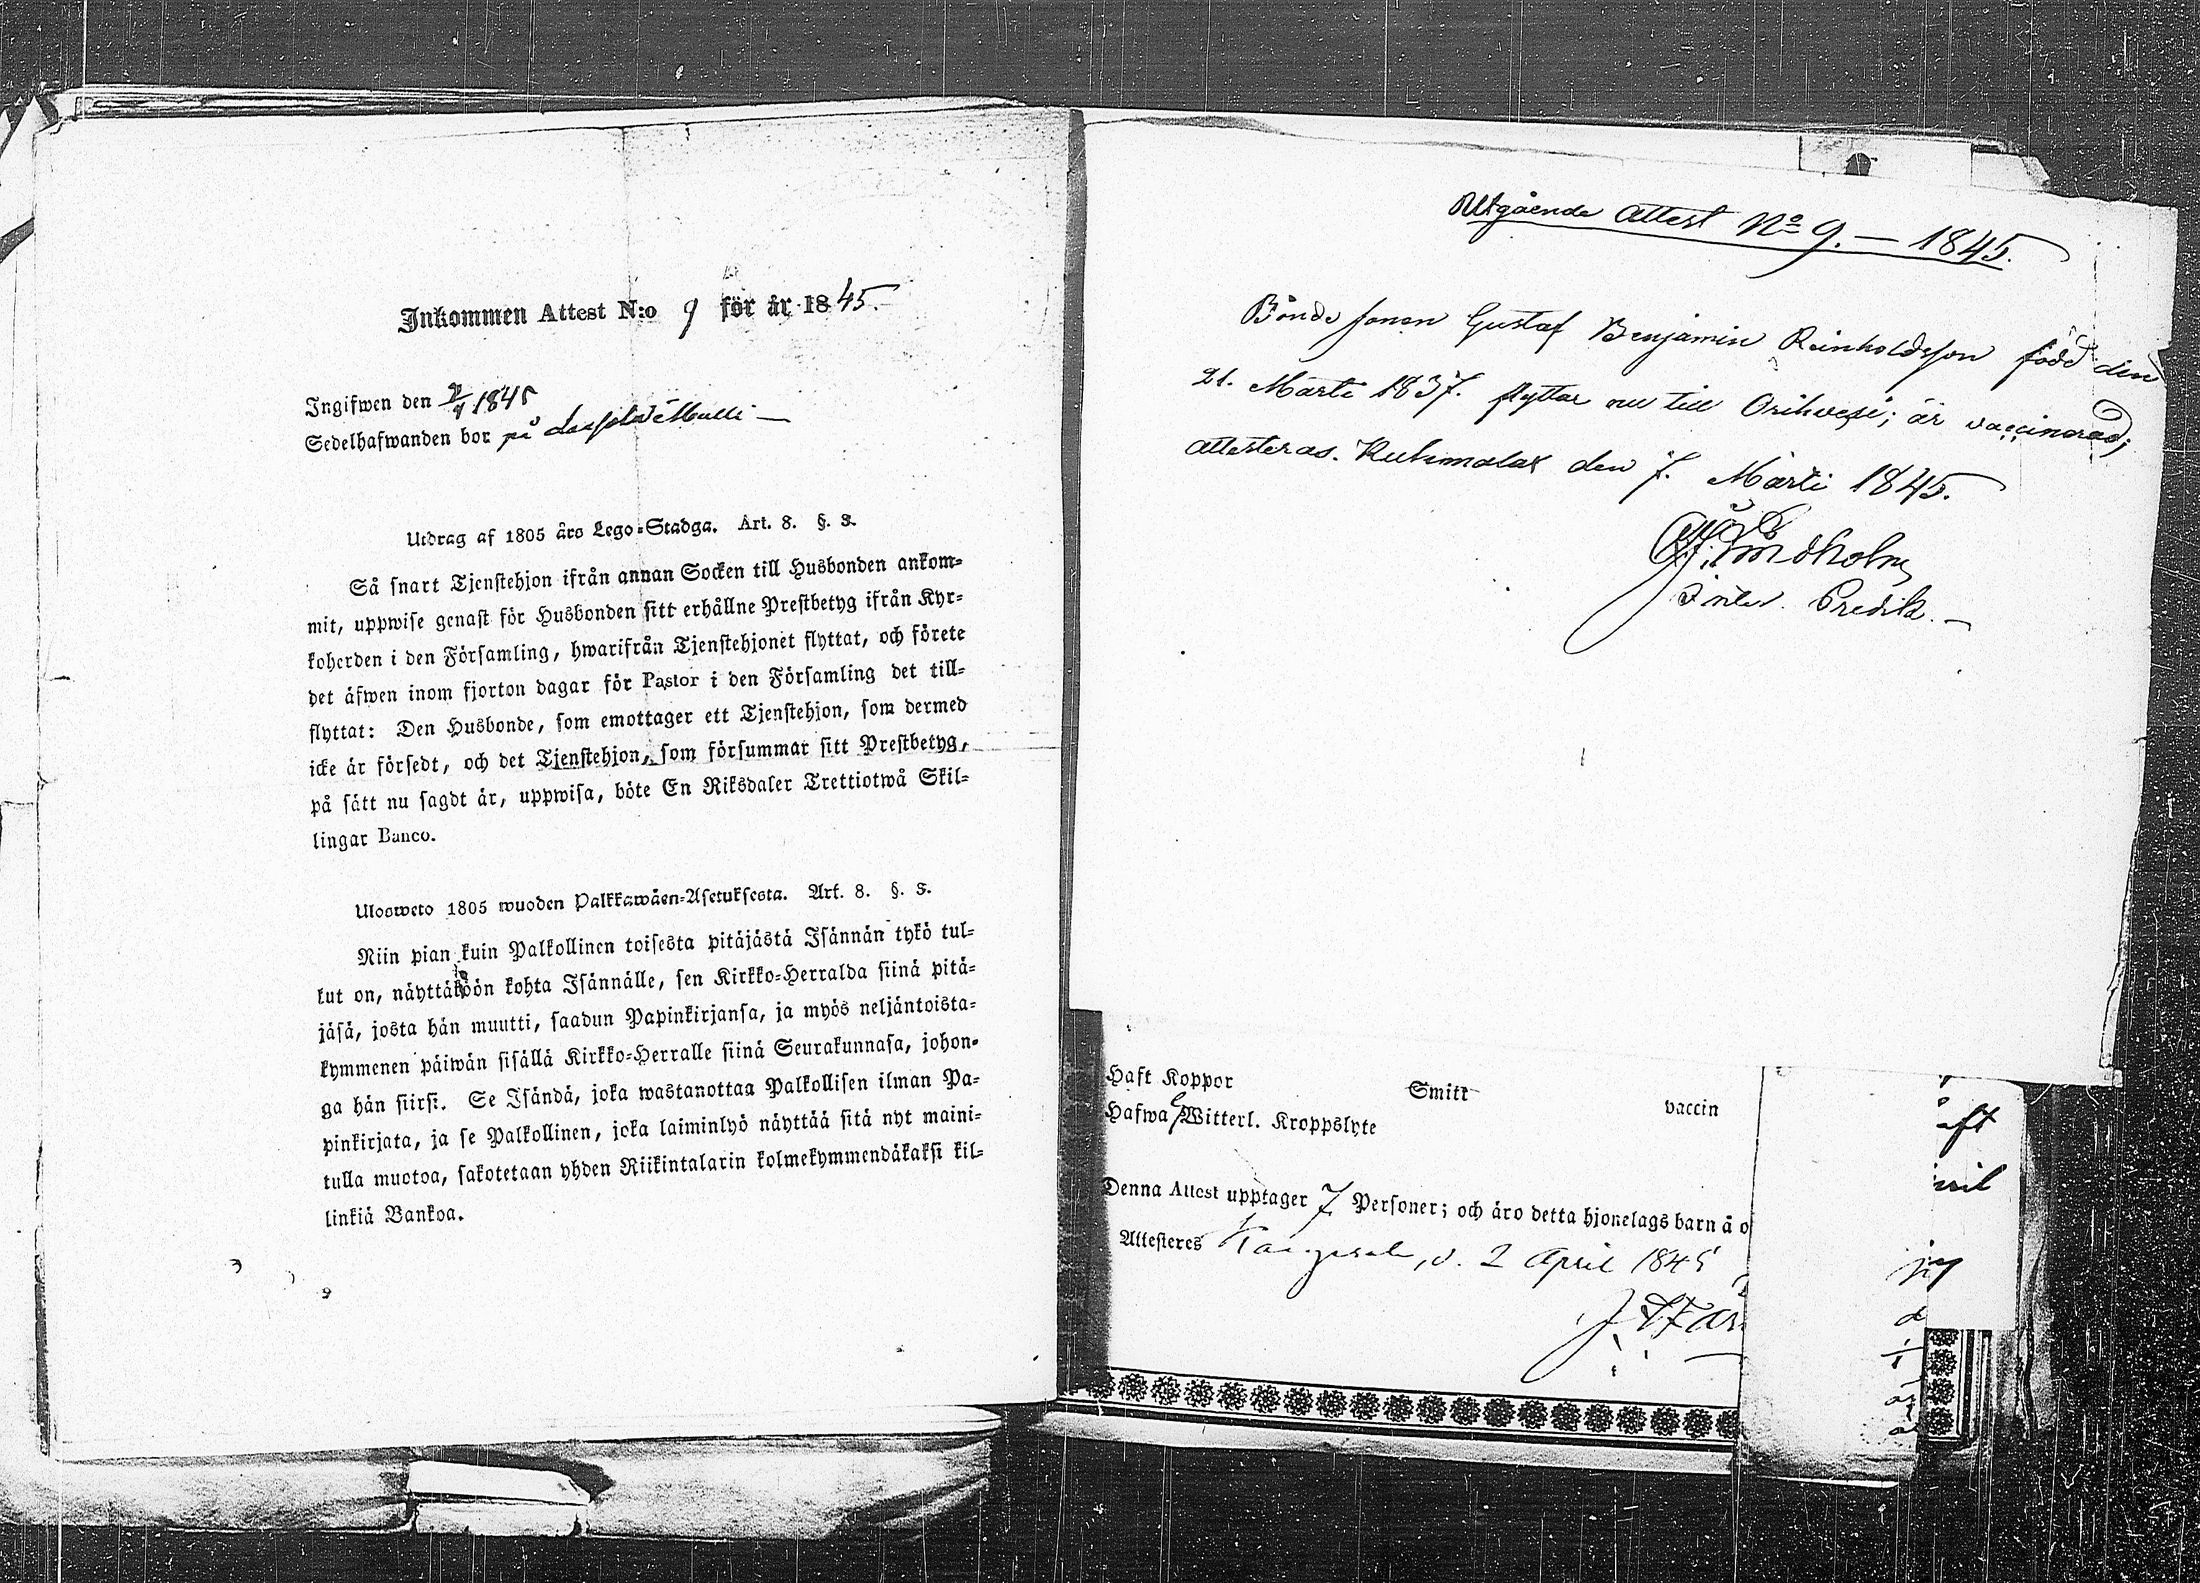 Inkommen Attest N:o 9 för år 1845.
Ingifwen den 1845
Sedelhafwanden bor på
Utdrag af 1805 års Lego-Stadga. Art. 8. §. 3.
Så snart Tjenstehjon ifrån annan Socken till Husbonden ankom-
mit, uppwise genast för Husbonden sitt erhållne Prestbetyg ifrån Kyr-
koherden i den Församling, hwarifrån Tjenstehjonet flyttat, och förete
det äfwen inom fjorton dagar för Pastor i den Församling det till-
flyttat: Den Husbonde, som emottager ett Tjenstehjon, som dermed
icke är försedt, och det Tjenstehjon, som försummar sitt Prestbetyg,
på sätt nu sagdt är, uppwisa, böte En Riksdaler Trettiotwå Skil-
lingar Banco.
Ulosweto 1805 wuoden Palkkawäen-Asetuksesta. Art. 8. §. 3.
Niin pian kuin Palkollinen toisesta pitäjästä Isännän tykö tul-
lut on, näyttäköön kohta Isännälle, sen Kirkko-Herralda siinä pitä-
jäsä, josta hän muutti, saadun Papinkirjansa, ja myös neljäntoista-
kymmenen päiwän sisällä Kirkko-Herralle siinä Seurakunnasa, johon-
ga hän siirsi. Se Isändä, joka wastanottaa Palkollisen ilman Pa-
pinkirjata, ja se Palkollinen, joka laiminlyö näyttää sitä nyt maini-
tulla muotoa, sakotetaan yhden Riikintalarin kolmekymmendäkaksi kil-
linkiä Bankoa.
Utgående Attest No 9. — 1845.
Bonde sonen Gustaf Benjamin Reinholdsson född den
21. Marti 1837. flyttar nu till Orihvesi; är vaccinerad;
attesteras. Kuhmalax den 7. Marti 1845.
Lindholm
Predik. —
Haft Koppor Smitt vaccin
Hafwa Witterl. Kroppslyte
Denna Attest upptager 7 Personer; och äro detta hjonelags barn å o
Attesteres Kangasala, d. 2 April 1845